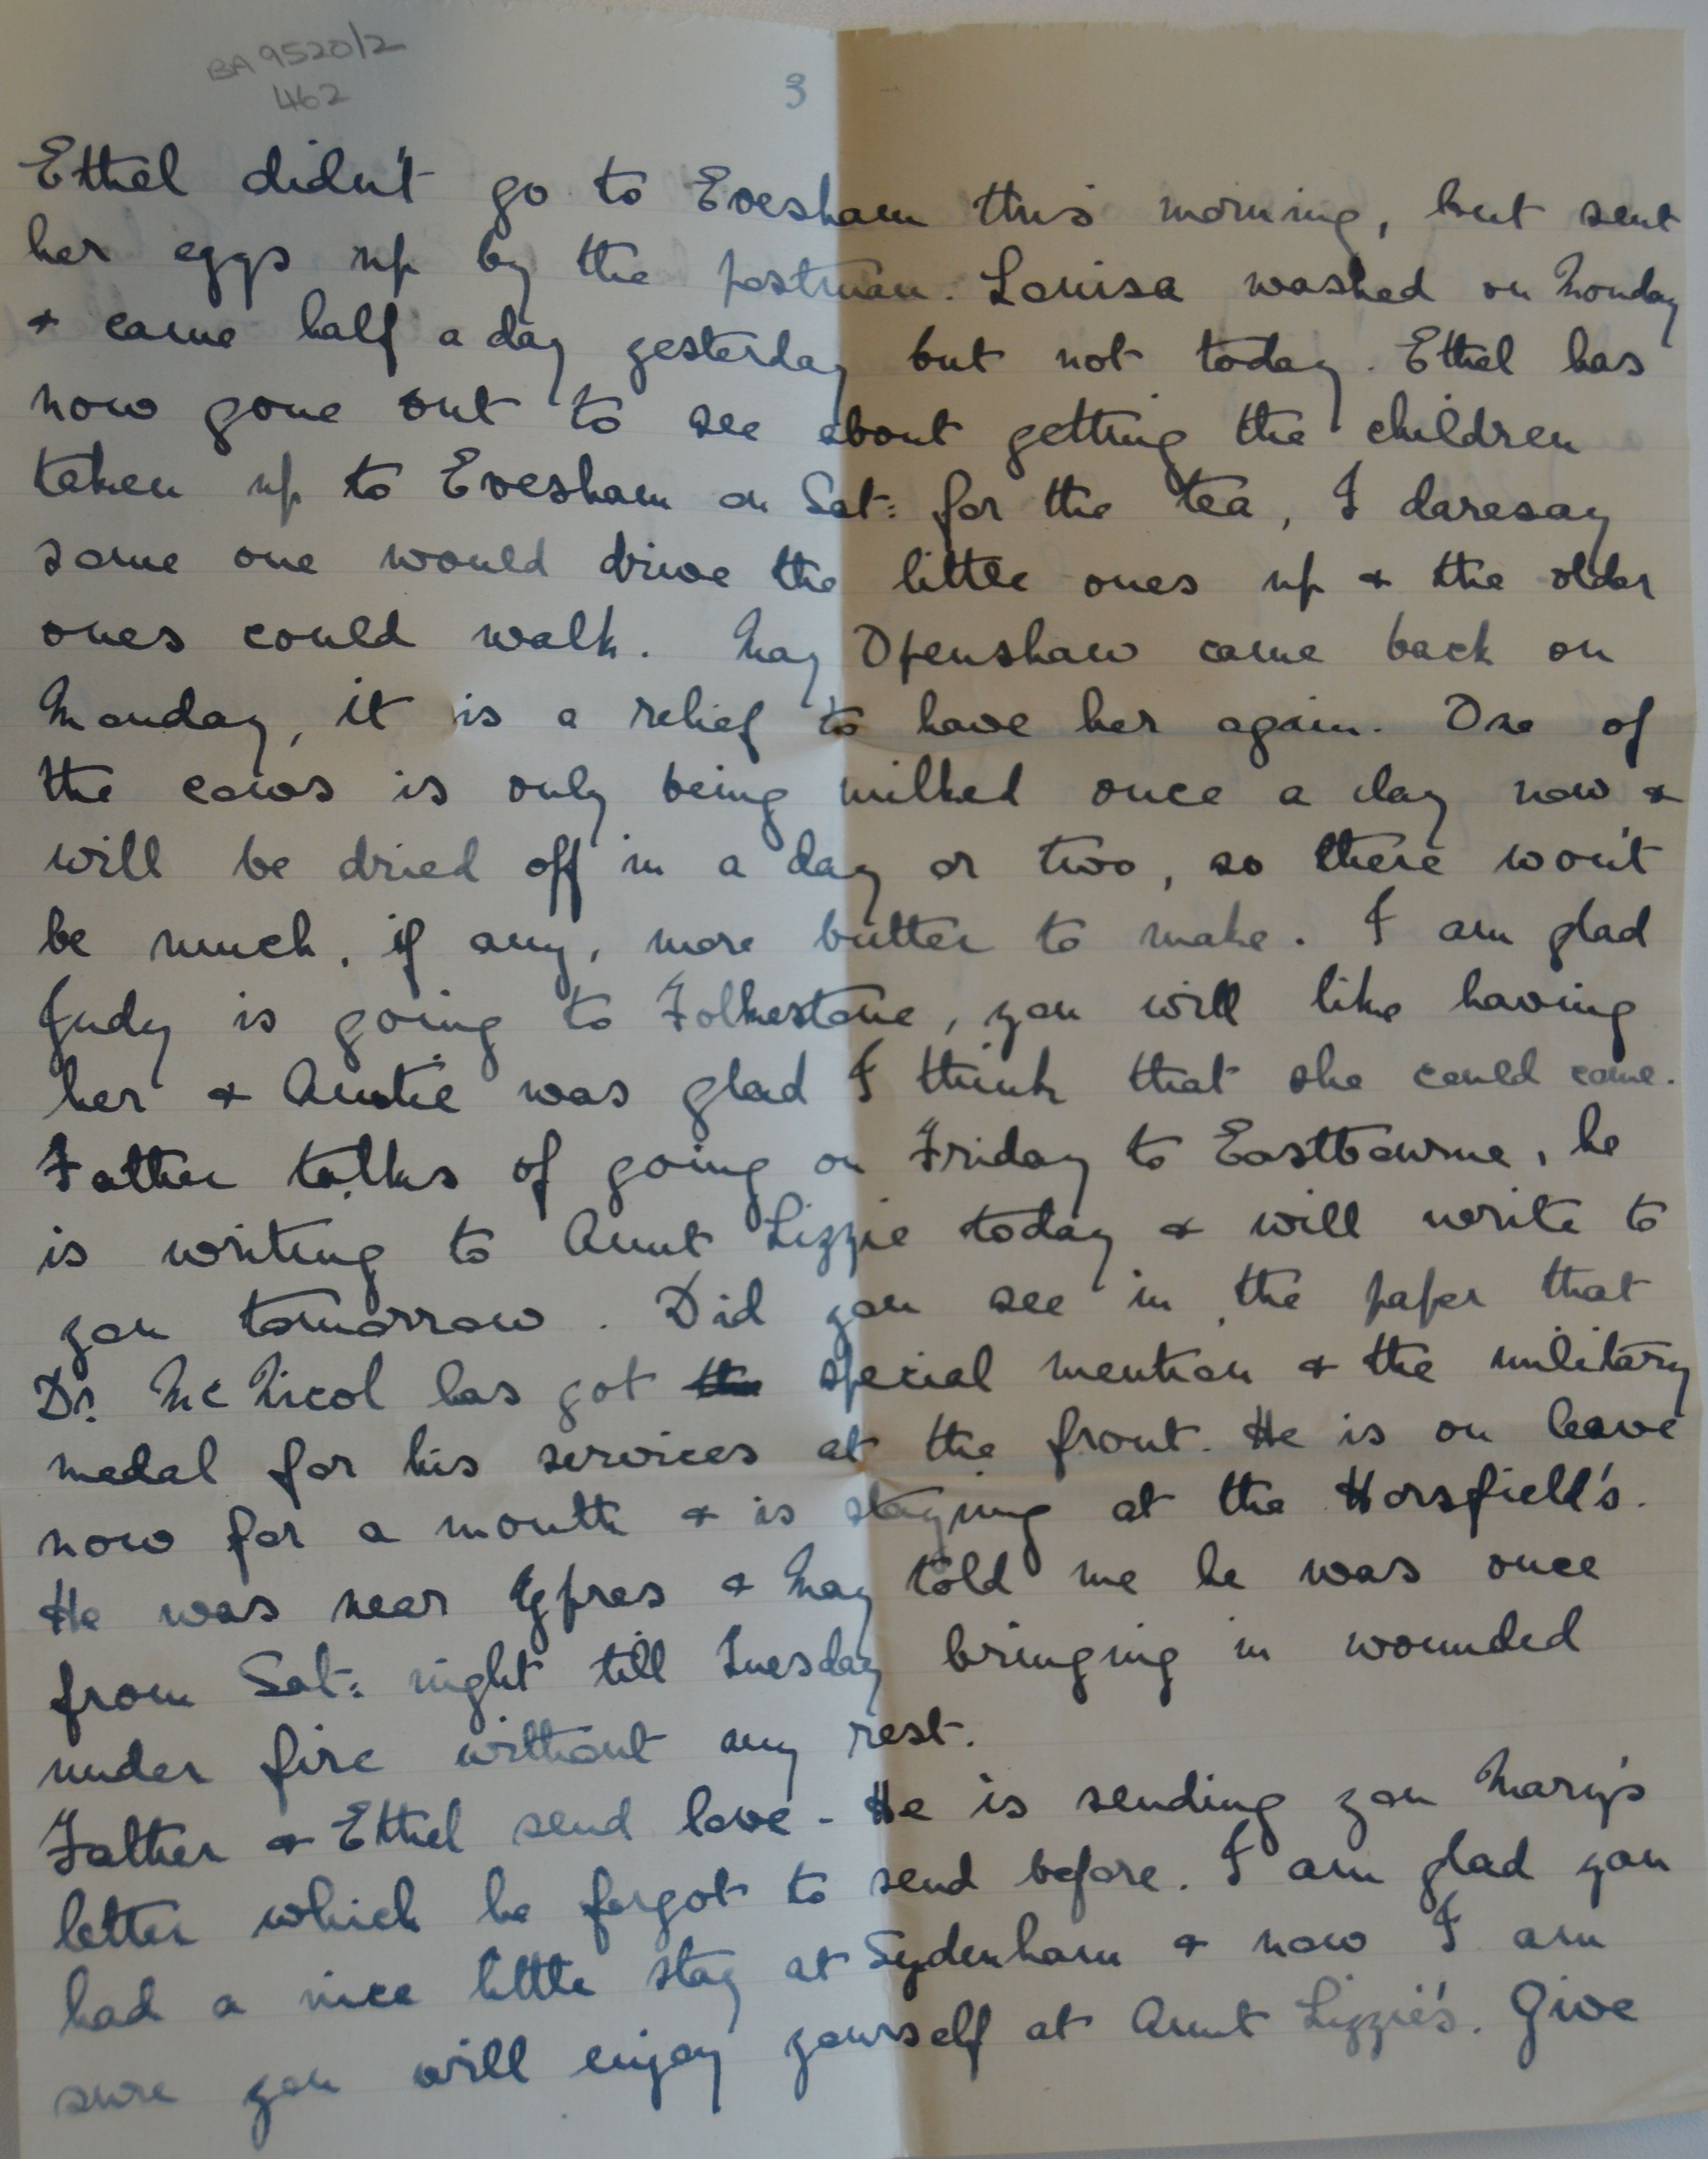 BA 9520/2
462
3
Ethel didn't go to Evesham this morning, but sent
her eggs up by the postman. Louisa washed on Monday
& came half a day yesterday but not today. Ethel has
now gone out to see about getting the children
taken up to Evesham on Sat: for the tea, I daresay
some one would drive the little ones up & the older
ones could walk. May Openshaw came back on
Monday, it is a relief to have her again. One of
the cows is only being milked once a day now &
will be dried off in a day or two, so there won't
be much, if any, more butter to make. I am glad
Judy is going to Folkestone, you will like having
her & Auntie was glad I think that she could come.
Father talks of going on Friday to Eastbourne, he
is writing to Aunt Lizzie today & will write to
you tomorrow. Did you see in the paper that
Dr. McNicol has got the special mention & the military
medal for his services at the front. He is on leave
now for a month & is staying at the Horsfield's.
He was near Ypres & May told me he was once
from Sat: night till Tuesday bringing in wounded
under fire without any rest.
Father & Ethel send love - He is sending you Mary's
letter which he forgot to send before. I am glad you
had a nice little stay at Sydenham & now I am
sure you will enjoy yourself at Aunt Lizzie's. Give